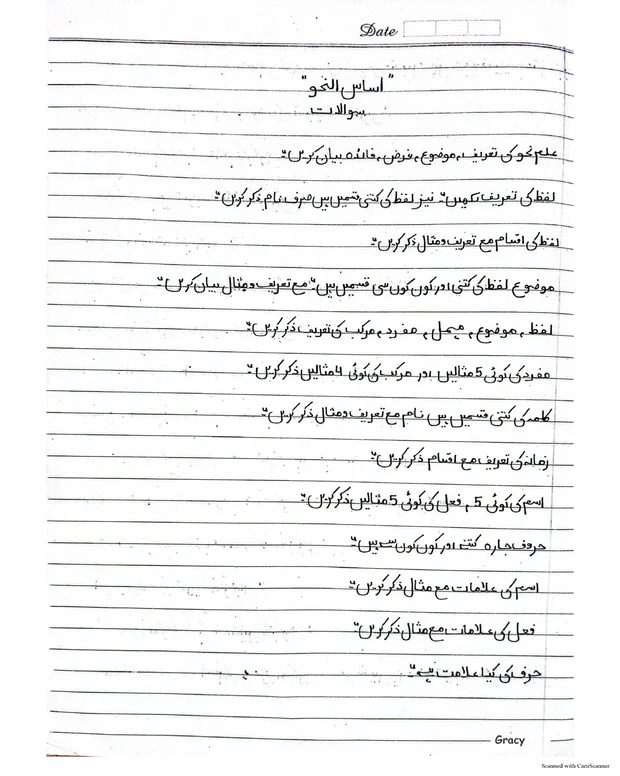 Date
"اساس النحو"
سوالات
علم نحو کی تعریف، موضوع، غرض، فائدہ بیان کریں؟
لفظ کی تعریف لکھیں؟ نیز لفظ کی کتنی قسمیں ہیں صرف نام ذکر کریں؟
لفظ کی اقسام مع تعریف و مثال ذکر کریں؟
موضوع لفظ کی کتنی اور کون کون سی قسمیں ہیں؟ مع تعریف و مثال بیان کریں؟
لفظ، موضوع، مہمل، مفرد، مرکب کی تعریف ذکر کریں؟
مفرد کی کوئی 5 مثالیں اور مرکب کی کوئی 4 مثالیں ذکر کریں؟
کلمہ کی کتنی قسمیں ہیں نام مع تعریف و مثال ذکر کریں؟
زمانہ کی تعریف مع اقسام ذکر کریں؟
اسم کی کوئی 5، فعل کی کوئی 5 مثالیں ذکر کریں؟
حروف جارہ کتنے اور کون کون سے ہیں؟
اسم کی علامات مع مثال ذکر کریں؟
فعل کی علامات مع مثال ذکر کریں؟
حرف کی کیا علامت ہے؟
Gracy
Scanned with CamScanner